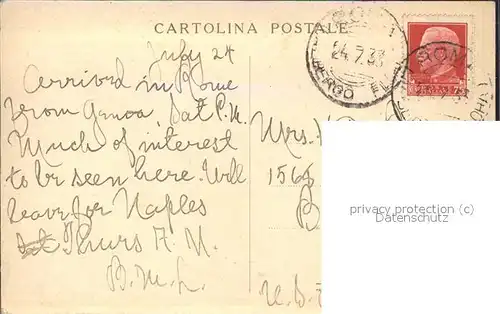 CARTOLINA POSTALE
July 24
Arrived in Rome
from Genoa, Sat P.M.
Much of interest
to be seen here. Will
leave for Naples
Thurs A.M.
B.M.L.
Mrs.
156
24.7.33
privacy protection (c)
Datenschutz